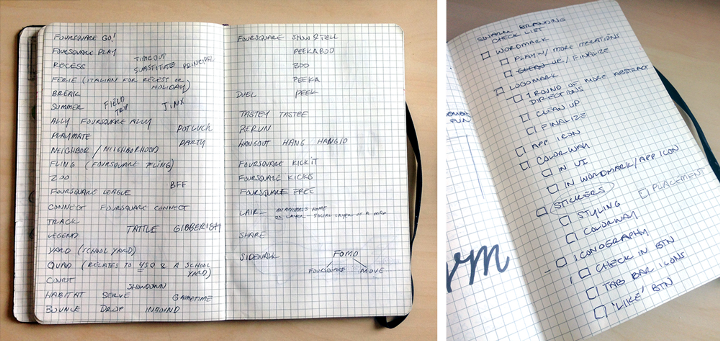 FOURSQUARE GO!
FOURSQUARE PLAY
TIMEOUT
RECESS
SUBSTITUTE PRINCIPAL
FERIE (ITALIAN FOR RECESS OR HOLIDAY)
BREAK
SUMMER FIELD TRIP JINX
ALLY FOURSQUARE ALLY
PLAYMATE
POTLUCK PARTY
NEIGHBOR / NEIGHBORHOOD
FLING (FOURSQUARE FLING)
ZOO
BFF
FOURSQUARE LEAGUE
CONNECT FOURSQUARE CONNECT
TRACK
TATTLE GIBBERISH
LEGEND
YARD (SCHOOL YARD)
QUAD (RELATES TO 4SQ & A SCHOOL YARD)
COUNT
SHOWDOWN
HABITAT SERVE GAMETIME
BOUNCE DROP INBOUND
FOURSQUARE SHOW & TELL
PEEKABOO
BOO
PEEKA
DUEL PEEL
TASTEY TASTEE
BERLIN
HANGOUT HANG HANGIO
FOURSQUARE KICKIT
FOURSQUARE KICKS
FOURSQUARE FREE
LAIR
SHARE
SIDEWALK FOMO
FOURSQUARE MOVE
SWARM BRANDING
CHECK LIST
WORDMARK
PLAY W/ MORE ITERATIONS
FINALIZE
LOGOMARK
1 ROUND OF MORE ABSTRACT DIRECTIONS
CLEAN UP
FINALIZE
APP ICON
COLORWAY
IN UI
IN WORDMARK/APP ICON
STICKERS
STYLING PLACEMENT
COLORWAY
ICONOGRAPHY
CHECK IN BTN
TAB BAR ICONS
'LIKE' BTN
rm